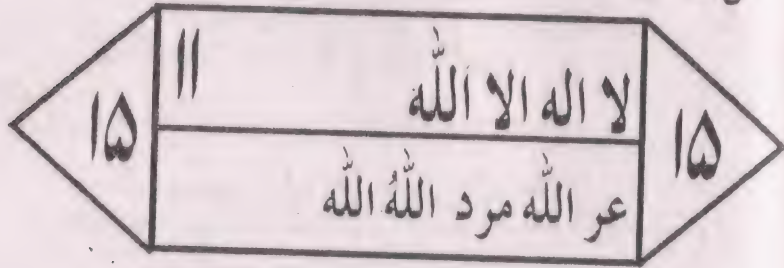 ۱۵
لا اله الا الله ۱۱
عر الله مرد اللهُ الله
۱۵